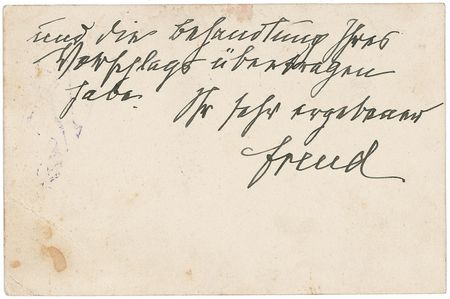 und die Behandlung Ihres
Vorschlags übertragen
habe.
Ihr sehr ergebener
Freud